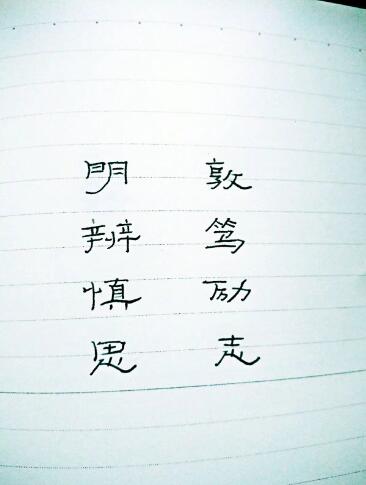 敦笃励志
明辨慎思